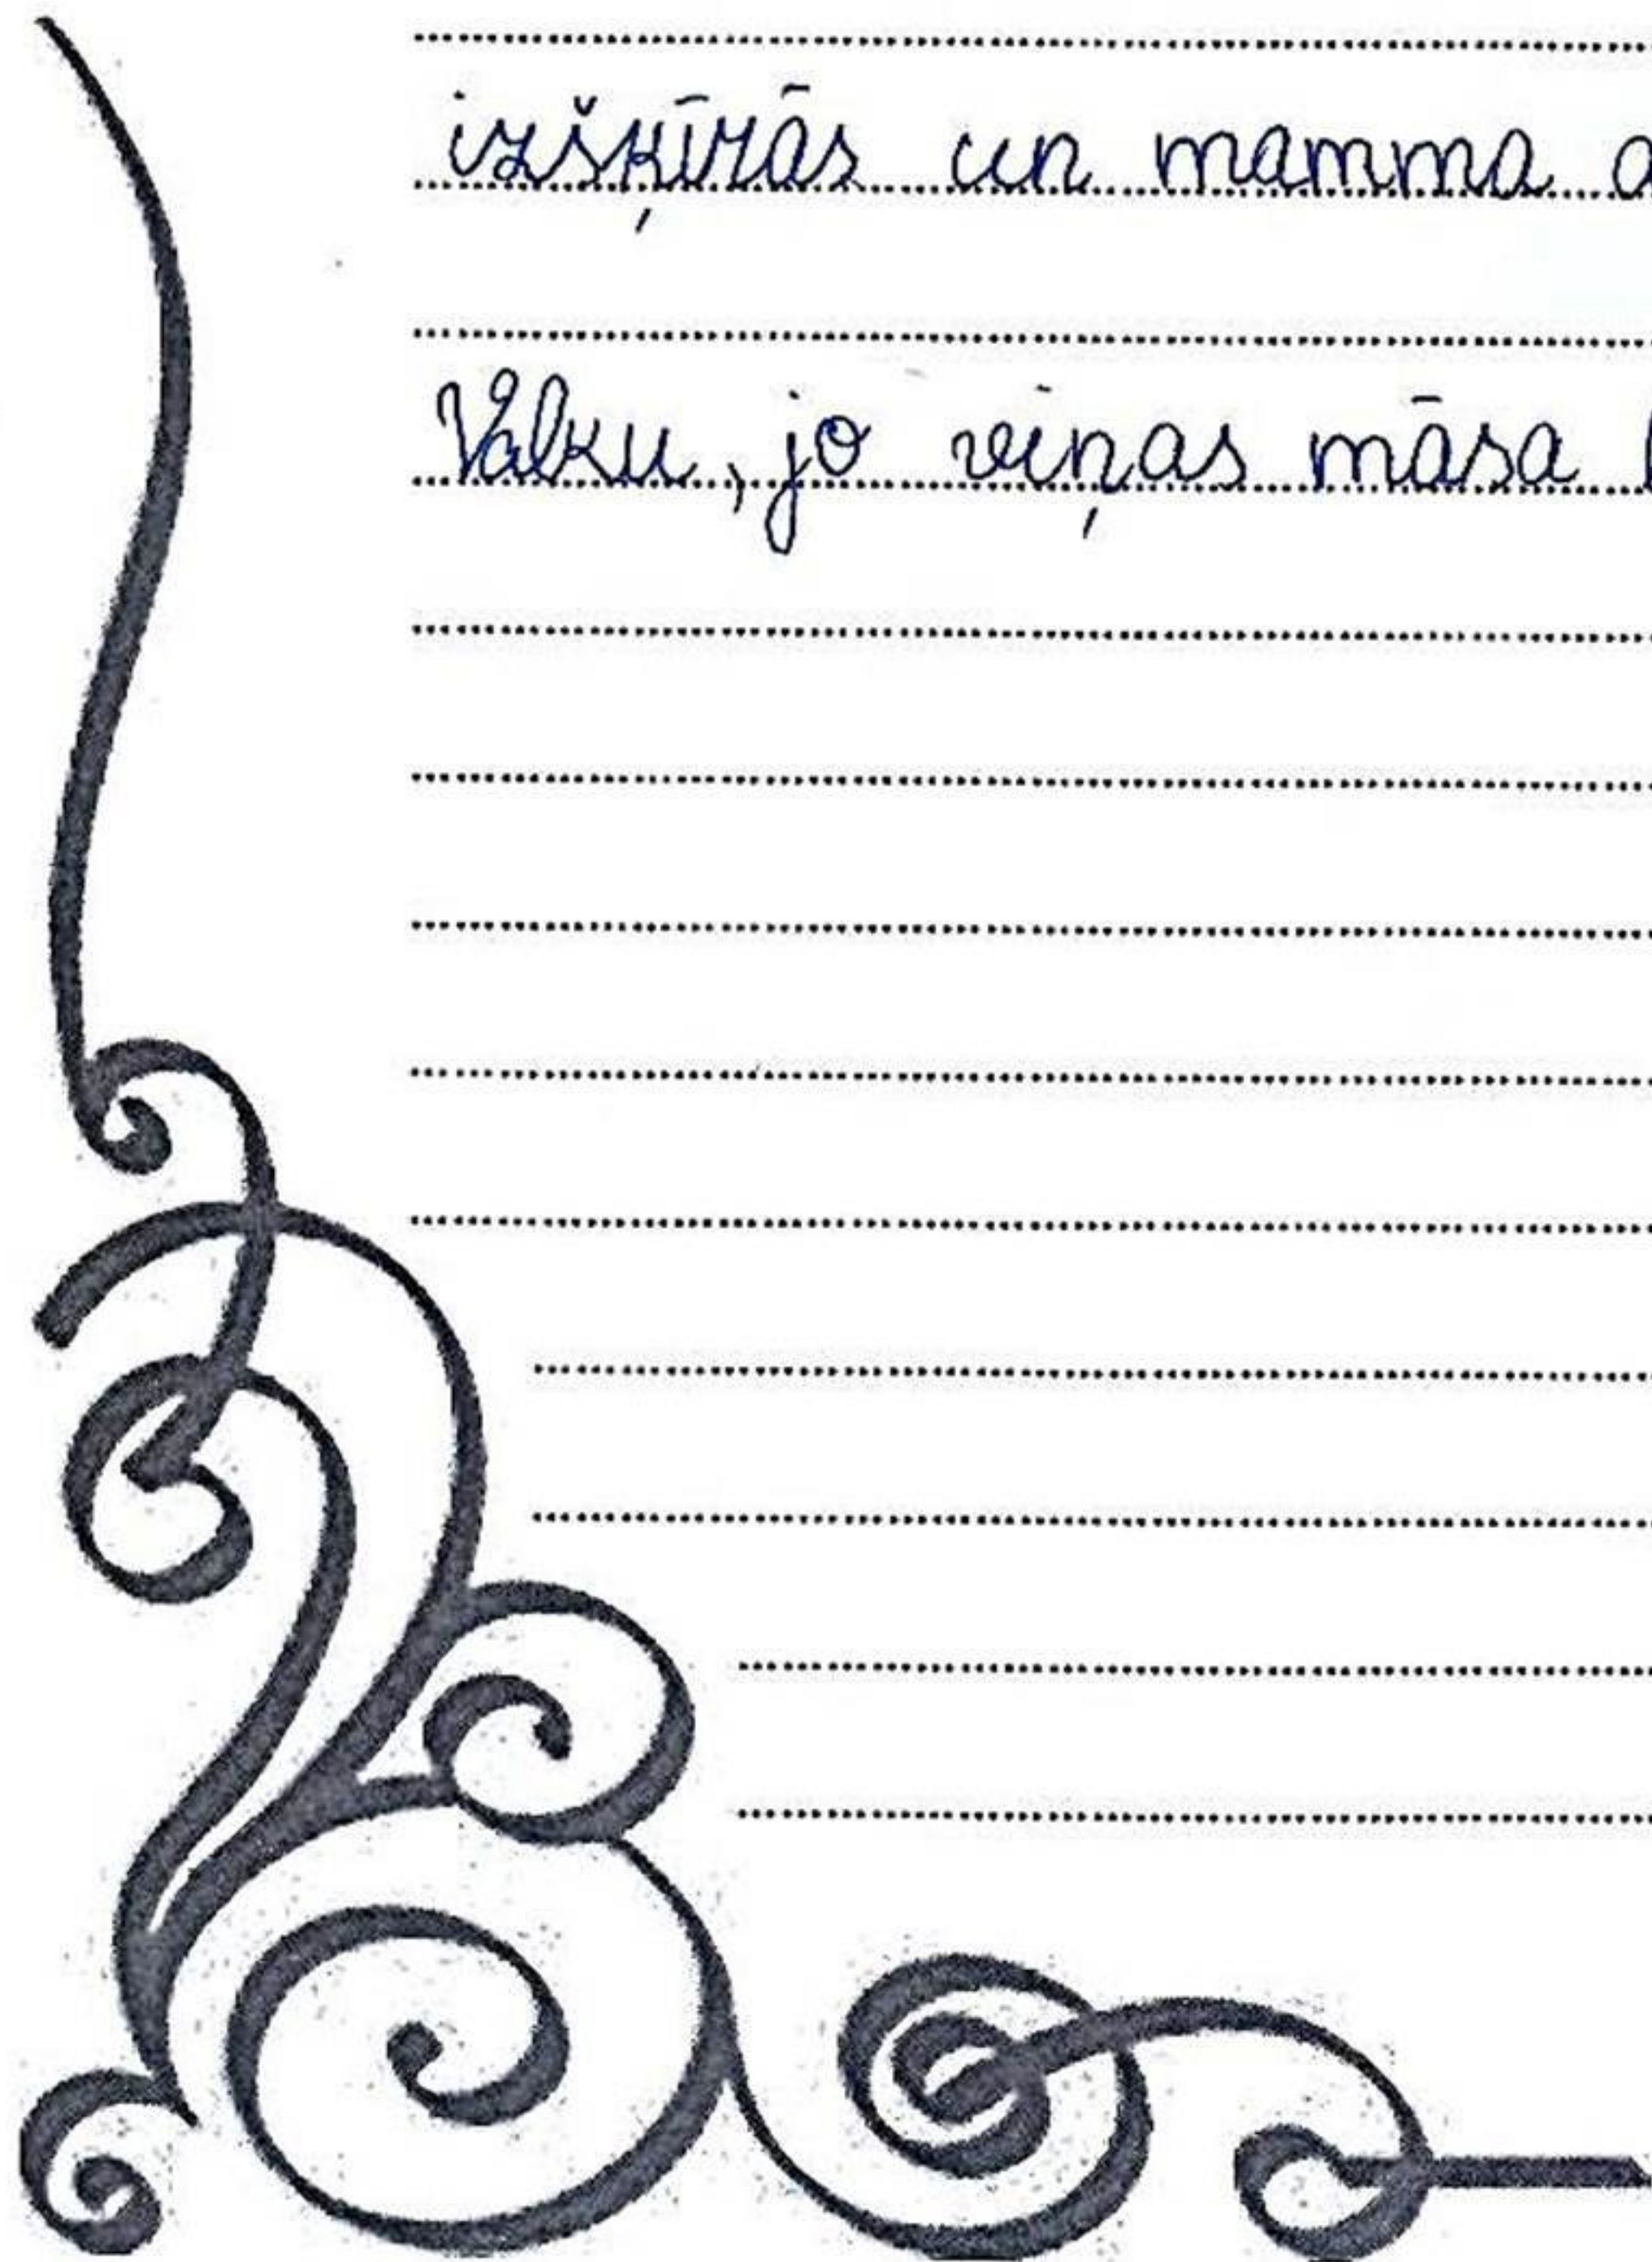 izšķīrās un mamma
Valku, jo viņas māsa